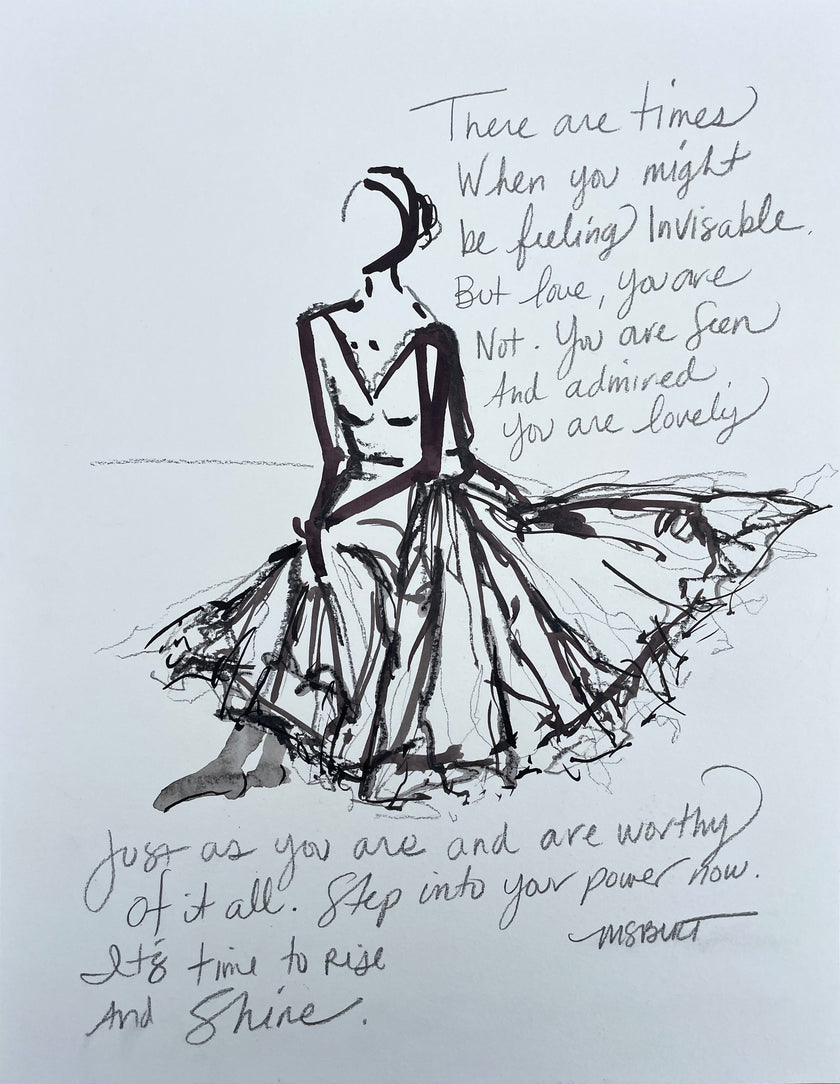 There are times
When you might
be feeling Invisable.
But love, you are
Not. You are Seen
And admired.
You are lovely
Just as you are and are worthy
Of it all. Step into your power now.
It's time to Rise
And Shine.
MSBURT